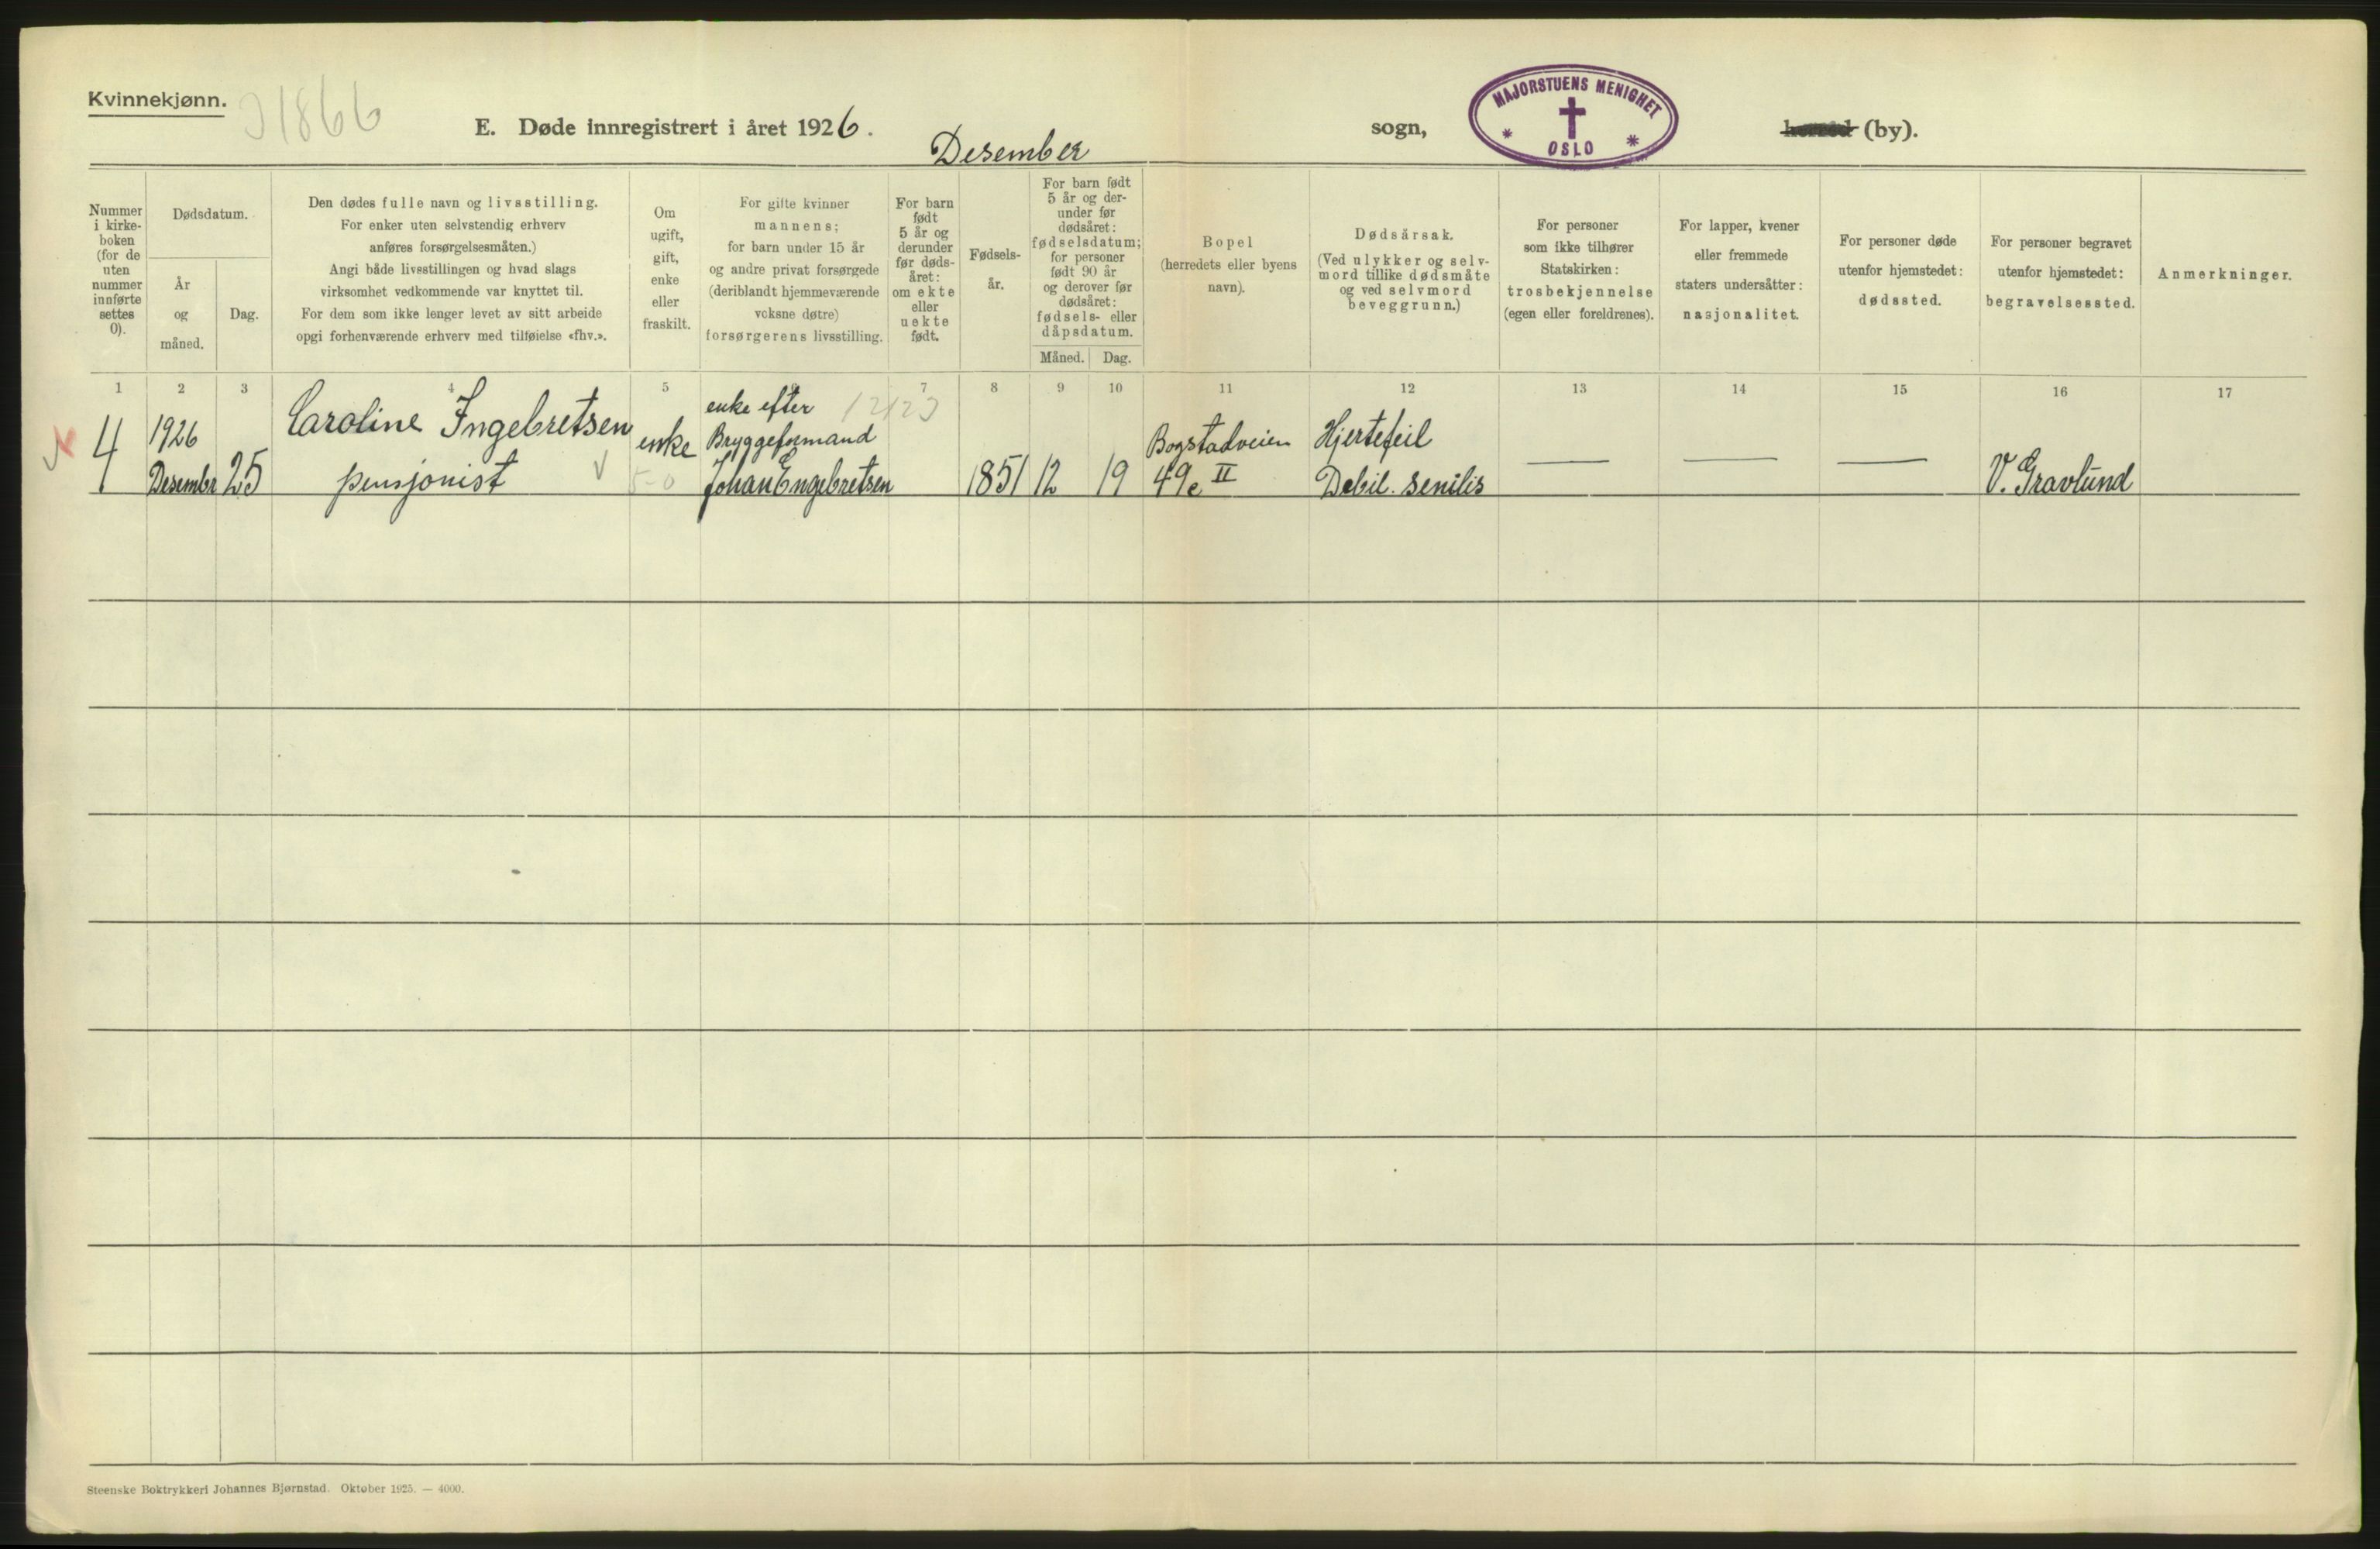 Kvinnekjønn.
31866
E. Døde innregistrert i året 1926.
Desember
sogn,
MAJORSTUENS MENIGHET
* *
OSLO
herred (by).
Nummer
i kirke-
boken
(for de
uten
nummer
innførte
settes
0).
Dødsdatum.
År
og
måned.
Dag.
Den dødes fulle navn og livsstilling.
For enker uten selvstendig erhverv
anføres forsørgelsesmåten.)
Angi både livsstillingen og hvad slags
virksomhet vedkommende var knyttet til.
For dem som ikke lenger levet av sitt arbeide
opgi forhenværende erhverv med tilføielse «fhv.».
Om
ugift,
gift,
enke
eller
fraskilt.
For gifte kvinner
mannens;
for barn under 15 år
og andre privat forsørgede
(deriblandt hjemmeværende
voksne døtre)
forsørgerens livsstilling.
For barn
født
5 år og
derunder
før døds-
året:
om ekte
eller
uekte
født.
Fødsels-
år.
For barn født
5 år og der-
under før
dødsåret:
fødselsdatum;
for personer
født 90 år
og derover før
dødsåret:
fødsels- eller
dåpsdatum.
Måned. Dag.
Bopel
(herredets eller byens
navn).
Dødsårsak.
(Ved ulykker og selv-
mord tillike dødsmåte
og ved selvmord
beveggrunn.)
For personer
som ikke tilhører
Statskirken:
trosbekjennelse
(egen eller foreldrenes).
For lapper, kvener
eller fremmede
staters undersåtter:
nasjonalitet.
For personer døde
utenfor hjemstedet:
dødssted.
For personer begravet
utenfor hjemstedet:
begravelsessted.
Anmerkninger.
1 2 3 4 5 6 7 8 9 10 11 12 13 14 15 16 17
4
1926
Desembr
25
Caroline Ingebretsen
pensjonist
enke
5-0
enke efter
Bryggeformand
Johan Engebretsen
12123
1851
12
19
Bogstadveien
49c II
Hjertefeil
Debil. senilis
V. Gravlund
Steenske Boktrykkeri Johannes Bjørnstad. Oktober 1925. — 4000.